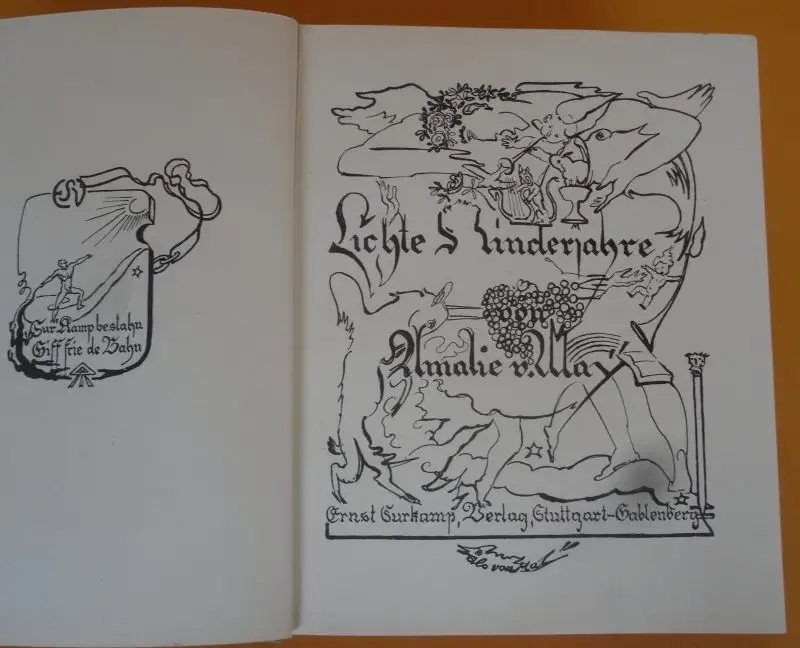 Sur Kamp bestahn
Giff frie de Bahn
Lichte Kinderjahre
von
Amalie v. May
Ernst Surkamp, Verlag, Stuttgart-Gablenberg
von